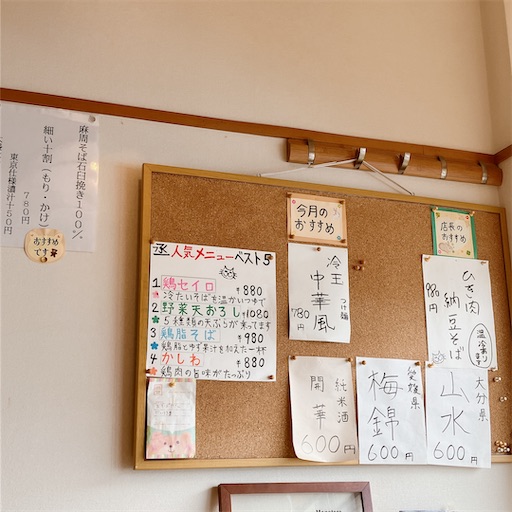 麻周そば石臼挽き100%
細い十割（もり・かけ）
780円
東京仕様濃汁十50円
おすすめ
です
人気メニューベスト5
1 鶏セイロ ¥880
冷たいそばを温かいつけで
2 野菜天おろし ¥1080
5種類の天ぷらが来ってます
3 鶏脂そば ¥980
鶏脂とゆず果汁を加えた一杯
4 かしわ ¥880
鶏肉の旨味がたっぷり
今月の
おすすめ
冷王
中華風
つけ麺
780円
店長の
おすすめ
ひき肉
納豆そば
980円
温冷あります
純米酒
開華
600円
愛媛県
梅錦
600円
大分県
山水
600円